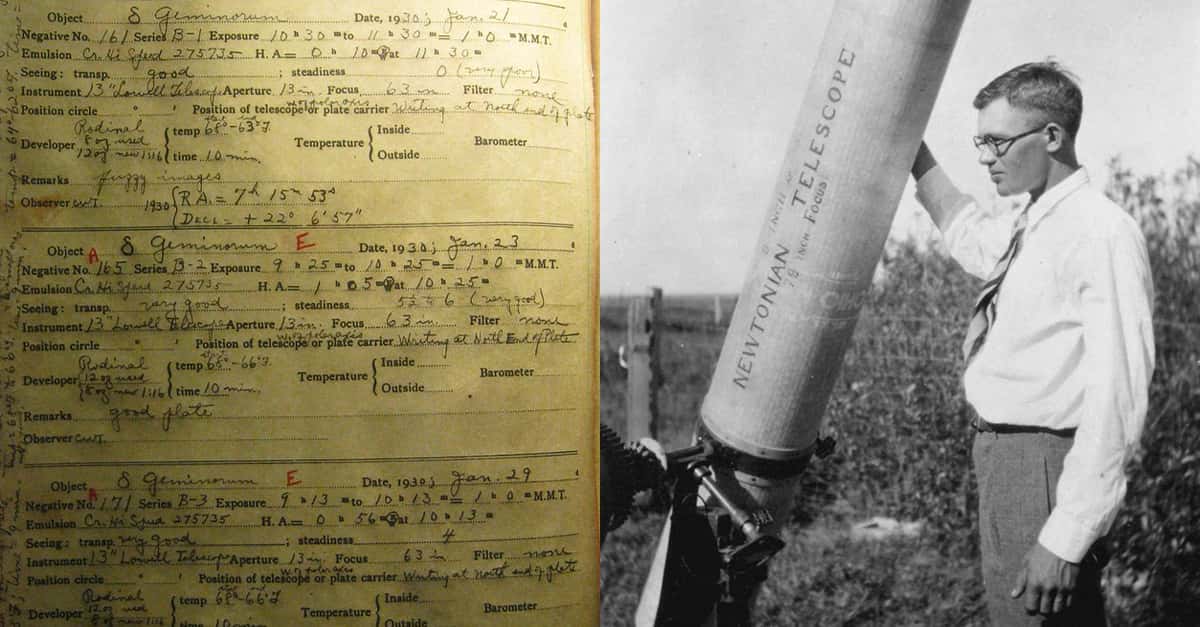 Object δ Geminorum Date, 1930; Jan. 21
Negative No. 161 Series B-1 Exposure 10 h 30 m to 11 h 30 m = 1 h 0 m M.M.T.
Emulsion Cr. Hi Speed 275735 H. A. = 0 h 10 m at 11 h 30 m
Seeing: transp. good ; steadiness 0 (very poor)
Instrument 13" Lowell Telescope Aperture 13 in. Focus 63 in. Filter none
w. of polar axis
Position circle ° ' Position of telescope or plate carrier Writing at North end of plate
Developer Rodinal 8 oz used 12 oz new 1:16 temp 68° - 63° F time 10 min.
Temperature Inside Outside Barometer
Remarks fuzzy images
Observer CWT. 1930 R.A. = 7h 15m 53s
Decl = + 22° 6' 57"
Object δ Geminorum E Date, 1930; Jan. 23
A
Negative No. 165 Series B-2 Exposure 9 h 25 m to 10 h 25 m = 1 h 0 m M.M.T.
Emulsion Cr. Hi Speed 275735 H. A. = 1 h 05 m at 10 h 25 m
Seeing: transp. very good ; steadiness 5 to 6 (very good)
Instrument 13" Lowell Telescope Aperture 13 in. Focus 63 in. Filter none
w. of polar axis
Position circle ° ' Position of telescope or plate carrier Writing at North End of Plate
Developer Rodinal 12 oz used 8 oz new 1:16 temp 65° - 66° F time 10 min.
Temperature Inside Outside Barometer
Remarks good plate
Observer CWT.
Object δ Geminorum E Date, 1930; Jan. 29
A
Negative No. 171 Series B-3 Exposure 9 h 13 m to 10 h 13 m = 1 h 0 m M.M.T.
Emulsion Cr. Hi Speed 275735 H. A. = 0 h 56 m at 10 h 13 m
Seeing: transp. very good ; steadiness 4
Instrument 13" Lowell Telescope Aperture 13 in. Focus 63 in Filter none
w. of polar axis
Position circle ° ' Position of telescope or plate carrier Writing at North end of plate
Developer Rodinal 12 oz used 8 oz new 1:16 temp 68° - 66° F time 10 min.
Temperature Inside Outside Barometer
NEWTONIAN TELESCOPE
79 INCH FOCUS